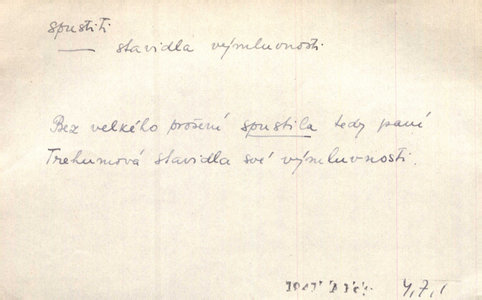 spustiti
— stavidla výmluvnosti
Bez velkého prošení spustila tedy paní
Trehumová stavidla své výmluvnosti.
4,7,1